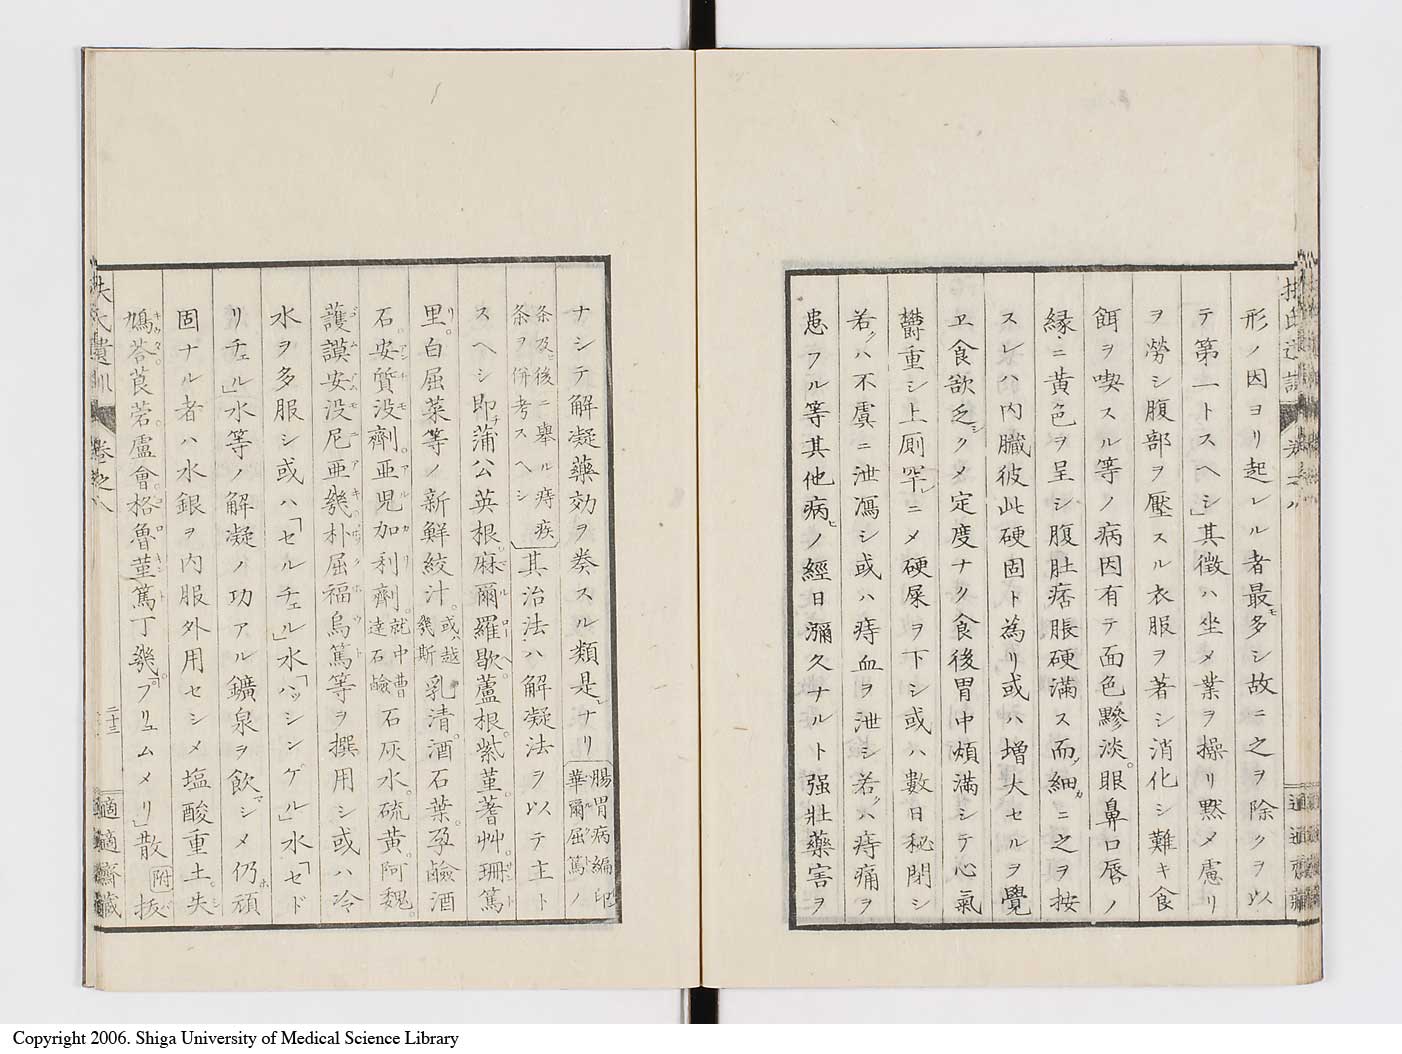 形ノ因ヨリ起レル者最モ多シ故ニ之ヲ除クヲ以
テ第一トスヘシ」其徴ハ坐メ業ヲ操リ黙メ慮リ
ヲ勞シ腹部ヲ壓スル衣服ヲ著シ消化シ難キ食
餌ヲ喫スル等ノ病因有テ面色黲淡。眼鼻口唇ノ
縁ニ黄色ヲ呈シ腹肚痞脹硬滿ス而細カニ之ヲ按
スレハ内臓彼此硬固ト為リ或ハ増大セルヲ覺
ヱ食欲乏シクメ定度ナク食後胃中煩滿シテ心氣
鬱重シ上厠罕レニメ硬屎ヲ下シ或ハ數日秘閉シ
若クハ不虞ニ泄瀉シ或ハ痔血ヲ泄シ若クハ痔痛ヲ
患フル等其他病ヒノ經日瀰久ナルト强壯藥害ヲ
ナシテ解凝藥効ヲ奏スル類是レナリ 腸胃病編印
華爾屈篤ノ
条及ヒ後ニ擧ル痔疾
条ヲ併考スヘシ 其治法ハ解凝法ヲ以テ主ト
スヘシ即チ蒲公英根麻爾羅歇蘆根。紫菫蓍艸。珊篤
里。白屈菜等ノ新鮮絞汁。或ハ越
幾斯 乳清酒石葉。孕鹼酒
石。安質没劑。亜児加利劑。就中曹
達石鹼 石灰水。硫黄。阿魏。
護謨安没尼亜幾朴屈福烏篤等ヲ撰用シ或ハ冷
水ヲ多服シ或ハ「セルチェル」水「ハッシンゲル」水「セド
リチェル」水等ノ解凝ノ功アル鑛泉ヲ飲マシメ仍ホ頑
固ナル者ハ水銀ヲ内服外用セシメ塩酸重土。失
鳩荅莨菪。盧會。格魯菫篤丁幾。「プリュムメリ」散 附 扳
扶氏遺訓 卷之八
二十三
適適齋藏